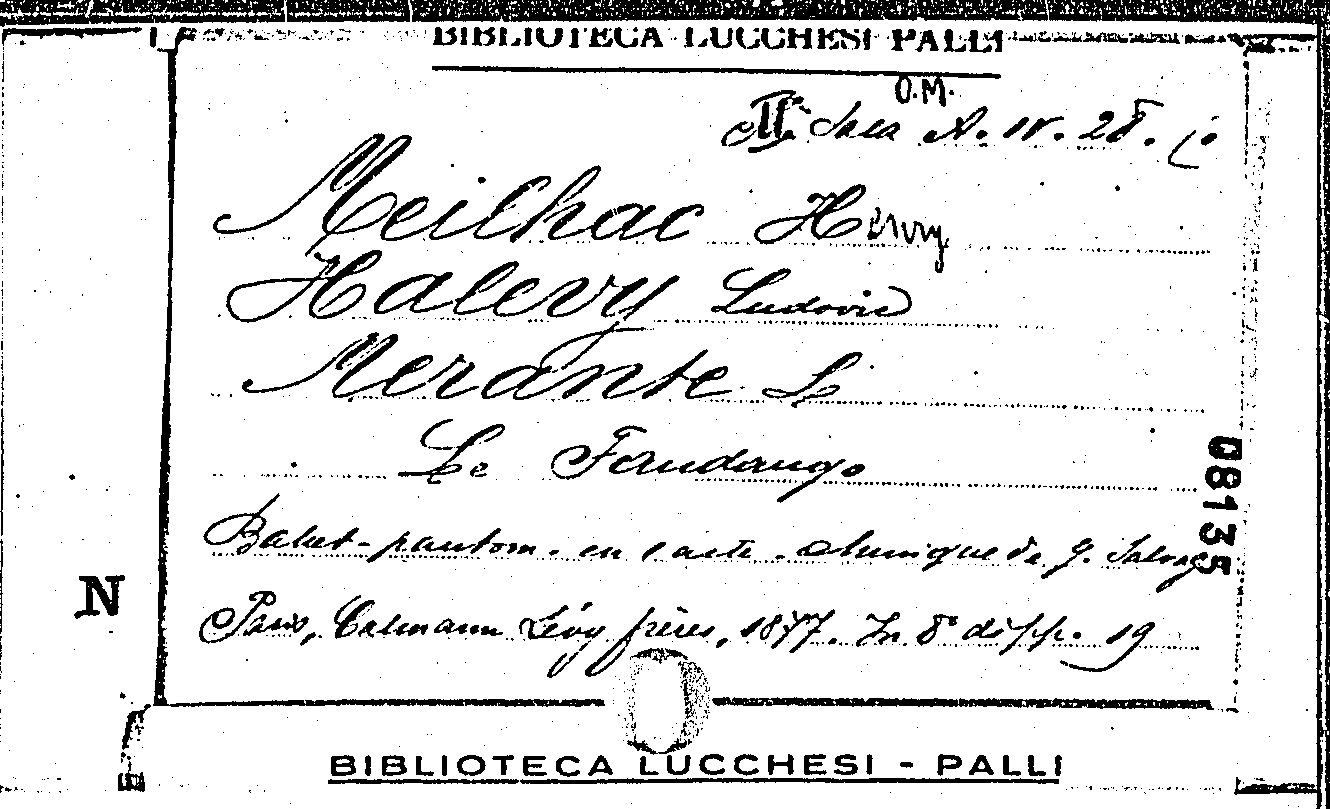 BIBLIOTECA LUCCHESI PALLI
O.M.
IIª Sala A. IV. 28.
Meilhac Henry
Halevy Ludovic
Merante L
Le Fandango
Ballet-pantom. en 1 acte. Musique de G. Salvay
08135
N
Paris, Calmann Lévy frères, 1877. In 8° di pp. 19
BIBLIOTECA LUCCHESI - PALLI